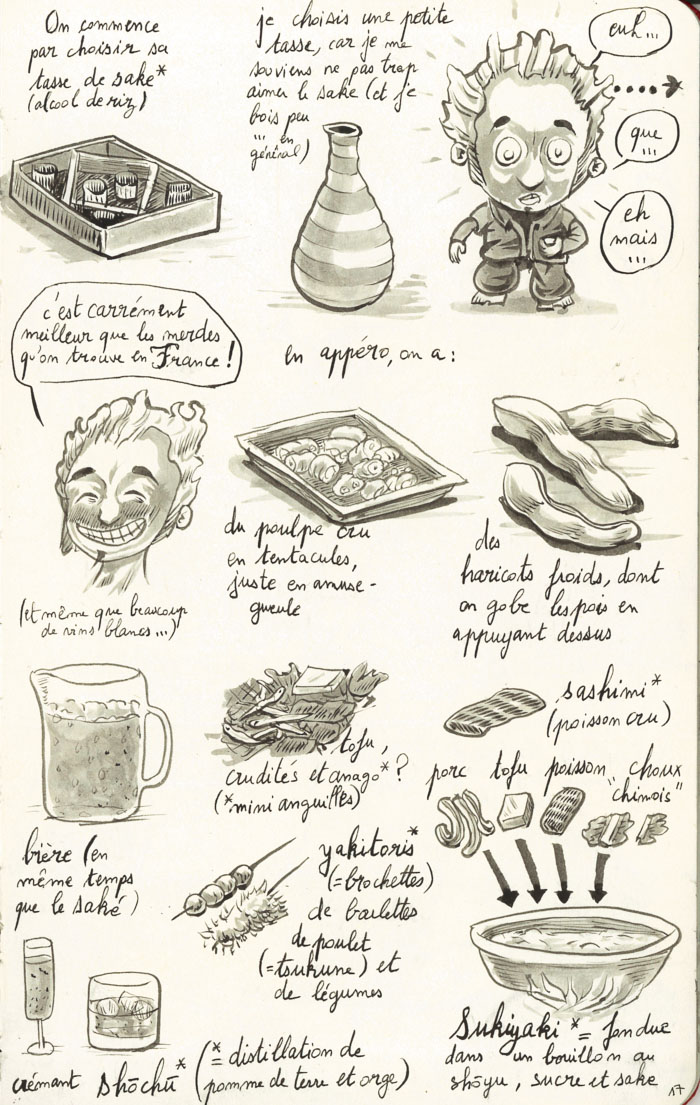 On commence
par choisir sa
tasse de sake*
(alcool de riz)
je choisis une petite
tasse, car je me
souviens ne pas trop
aimer le sake (et je
bois peu
... en
général)
euh...
que
...
eh
mais
...
c'est carrément
meilleur que les merdes
qu'on trouve en France !
(et même que beaucoup
de vins blancs...)
en appéro, on a :
du poulpe cru
en tentacules,
juste en amuse-
gueule
des
haricots froids, dont
on gobe les pois en
appuyant dessus
bière (en
même temps
que le saké)
tofu,
crudités et anago* ?
(*mini anguilles)
sashimi*
(poisson cru)
porc tofu poisson choux
"chinois"
yakitoris*
(=brochettes)
de boulettes
de poulet
(=tsukune) et
de légumes
crémant shōchū*
(*= distillation de
pomme de terre et orge)
Sukiyaki *= fondue
dans un bouillon au
shōyu, sucre et sake
17